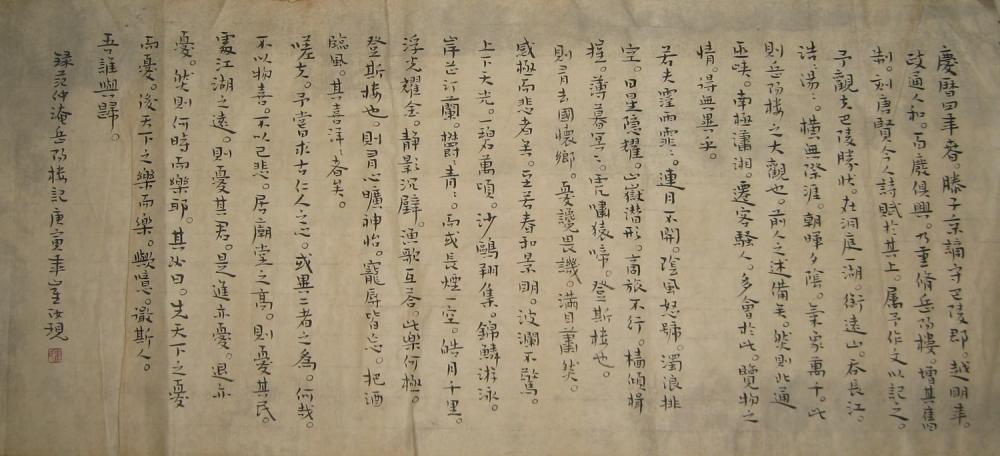 慶曆四年春。滕子京謫守巴陵郡。越明年。
政通人和。百廢俱興。乃重脩岳陽樓。增其舊
制。刻唐賢今人詩賦於其上。屬予作文以記之。
予觀夫巴陵勝狀。在洞庭一湖。銜遠山。吞長江。
浩〻湯〻。橫無際涯。朝暉夕陰。氣象萬千。此
則岳陽樓之大觀也。前人之述備矣。然則北通
巫峽。南極瀟湘。遷客騷人。多會於此。覽物之
情。得無異乎。
若夫霪雨霏〻。連月不開。陰風怒號。濁浪排
空。日星隱耀。山嶽潛形。商旅不行。檣傾楫
摧。薄暮冥〻。虎嘯猿啼。登斯樓也。
則有去國懷鄉。憂讒畏譏。滿目蕭然。
感極而悲者矣。至若春和景明。波瀾不驚。
上下天光。一碧萬頃。沙鷗翔集。錦鱗游泳。
岸芷汀蘭。欝〻青〻。而或長煙一空。皓月千里。
浮光耀金。靜影沉璧。漁歌互答。此樂何極。
登斯樓也。則有心曠神怡。寵辱皆忘。把酒
臨風。其喜洋〻者矣。
嗟夫。予嘗求古仁人之心。或異二者之為。何哉。
不以物喜。不以己悲。居廟堂之高。則憂其民。
處江湖之遠。則憂其君。是進亦憂。退亦
憂。然則何時而樂耶。其必曰。先天下之憂
而憂。後天下之樂而樂。歟噫。微斯人。
吾誰與歸。
錄范仲淹岳陽樓記庚寅年 汝現